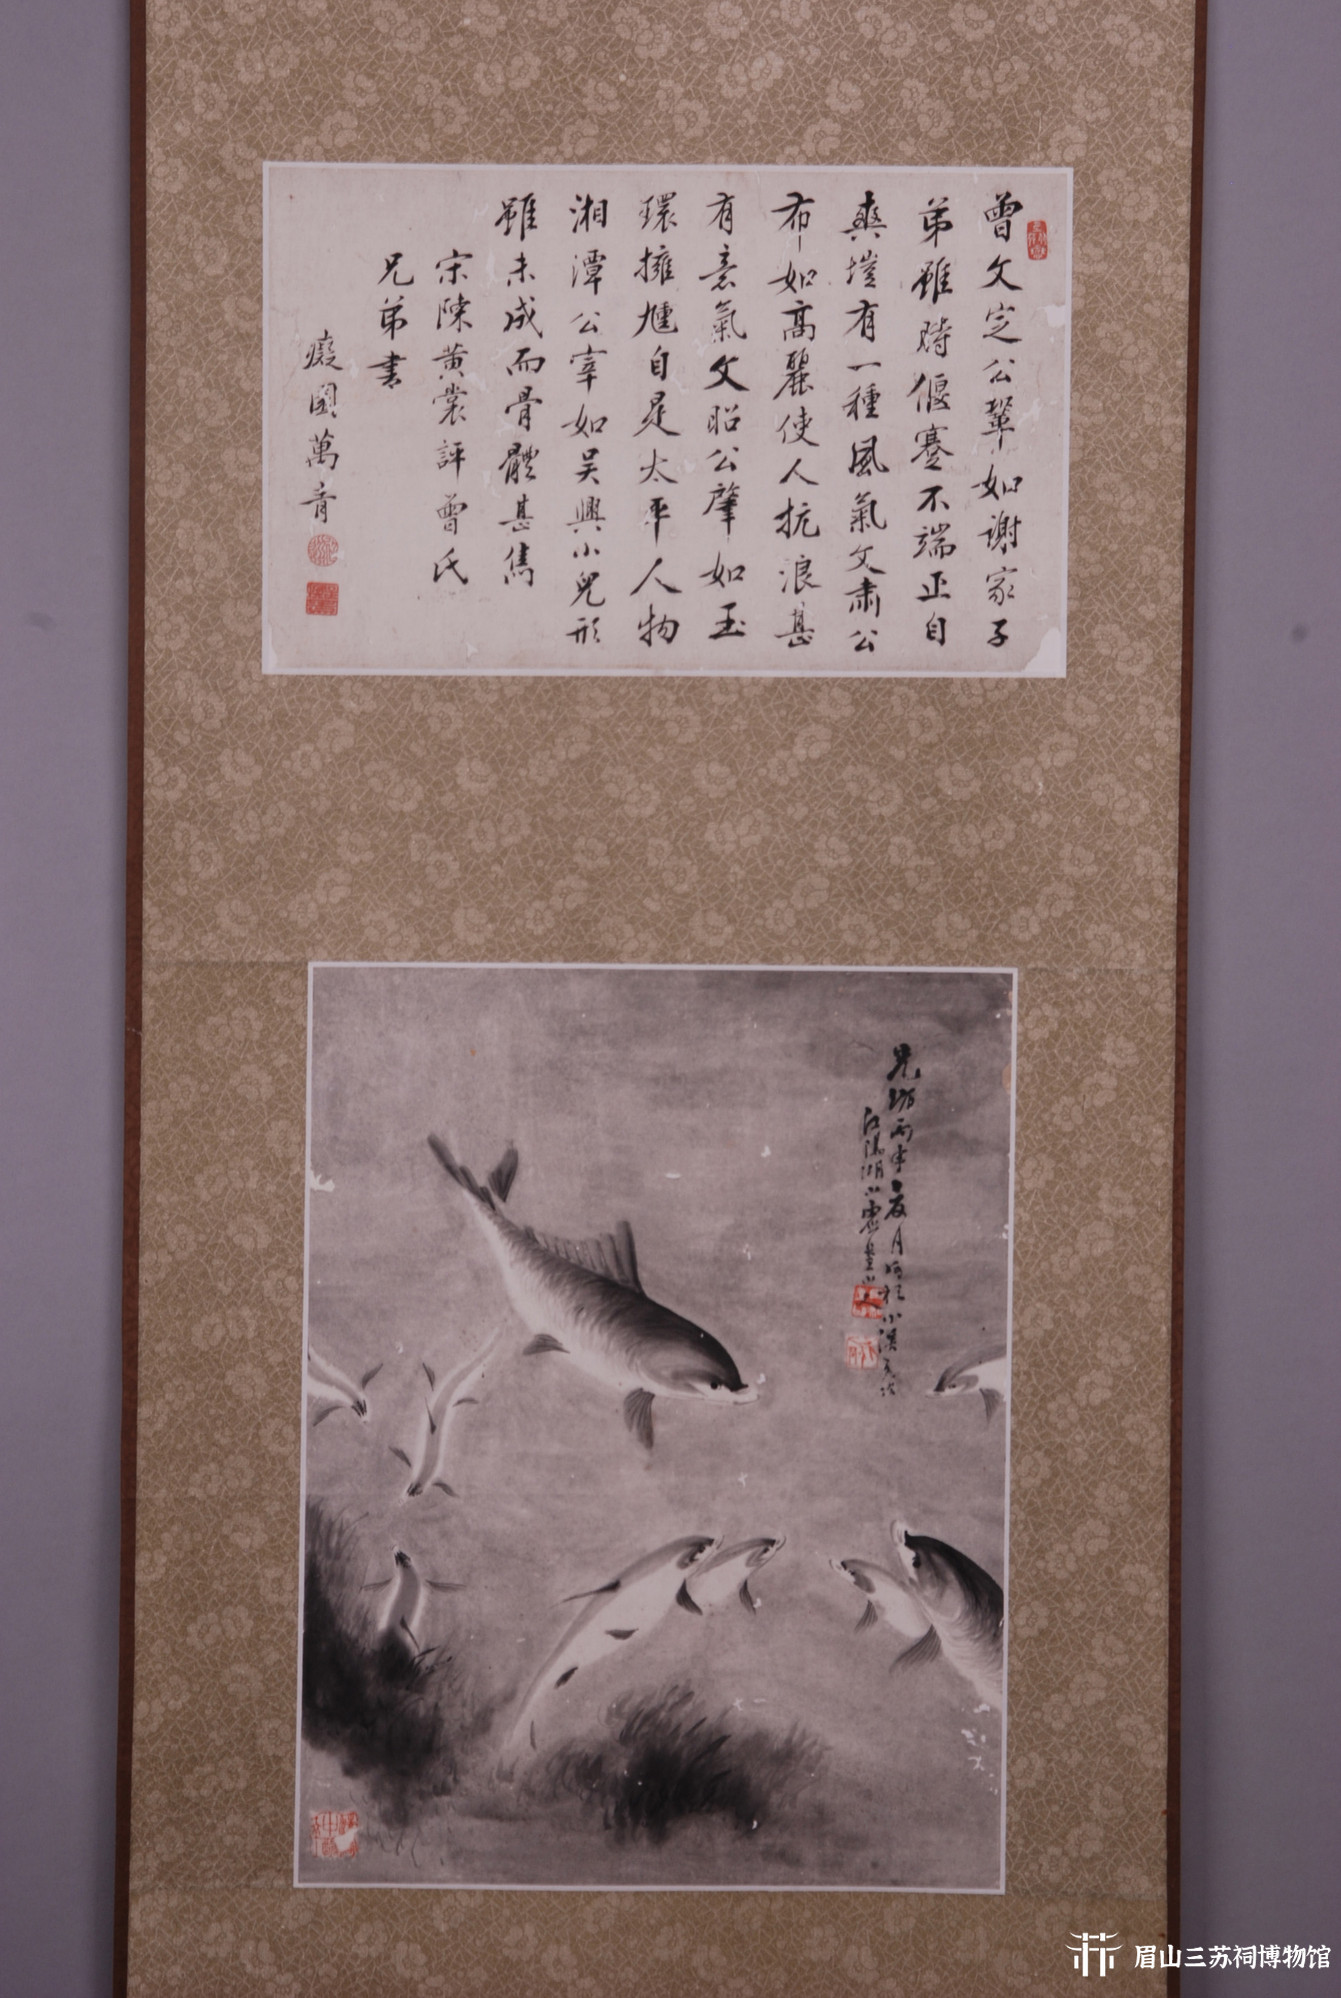 曾文定公鞏如謝家子
弟雖時偃蹇不端正自
爽塏有一種風氣文肅公
布如高麗使人抗浪甚
有意氣文昭公肇如玉
環擁尰自是太平人物
湘潭公宰如吴興小兒形
雖未成而骨體甚雋
宋陳黄裳評曾氏
兄弟書
癡園萬青
丙申
月
小溪
江陽湖
眉山三苏祠博物馆